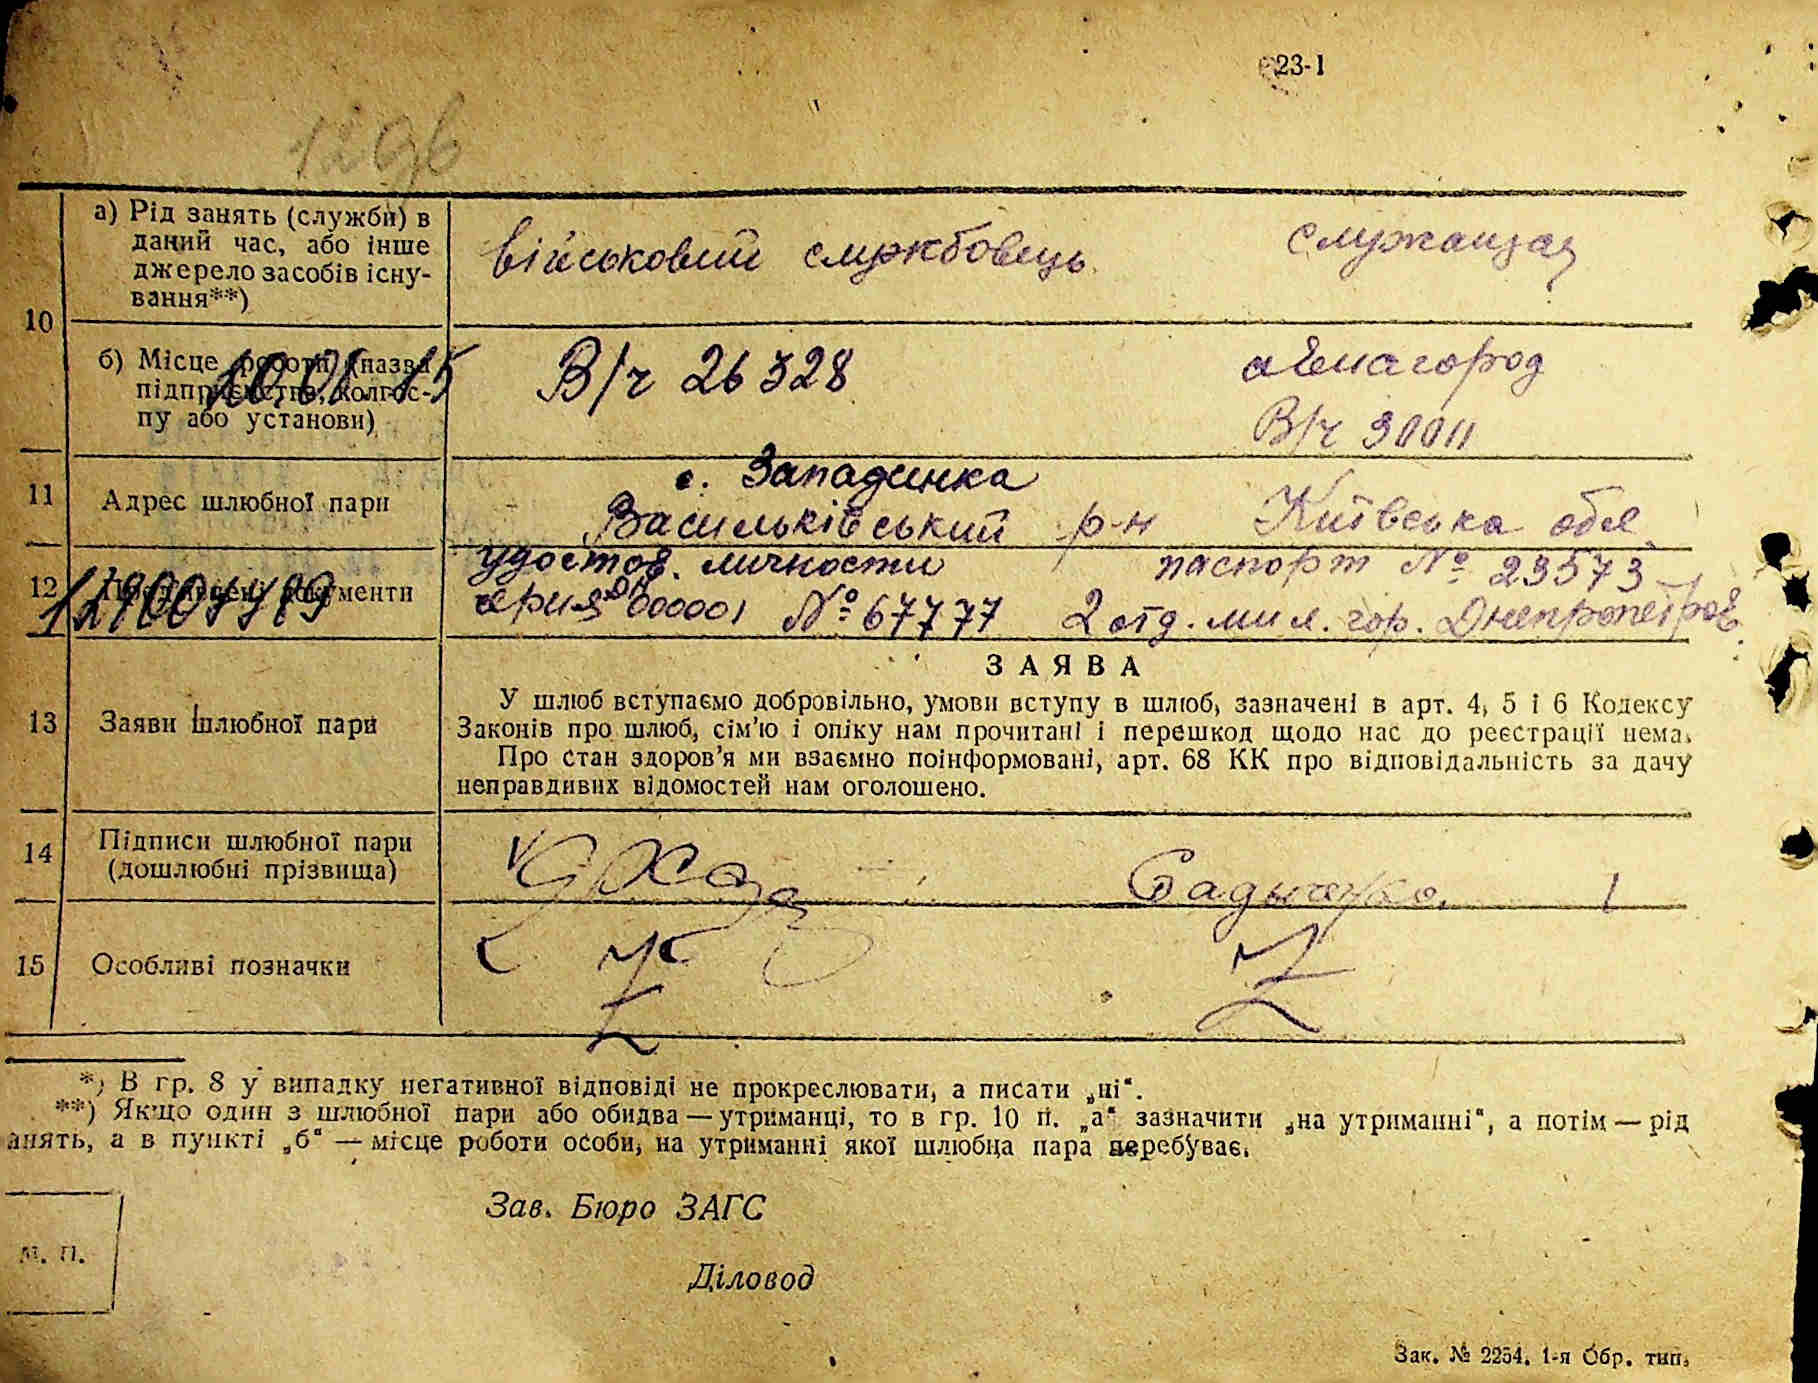 23-1
1296
10
а) Рід занять (служби) в
даний час, або інше
джерело засобів існу-
вання**)
військовий службовець
служащая
б) Місце роботи (назва
підприємства, колгос-
пу або установи)
10.01.15
В/ч 26328
авиагород
В/ч 30011
11
Адрес шлюбної пари
с. Западинка
Васильківський р-н Київська обл.
12
документи
удостов. личности
серия 000001 № 67777
паспорт № 23573
2 отд. мил. гор. Днепропетров.
13
Заяви шлюбної пари
ЗАЯВА
У шлюб вступаємо добровільно, умови вступу в шлюб, зазначені в арт. 4, 5 і 6 Кодексу
Законів про шлюб, сім'ю і опіку нам прочитані і перешкод щодо нас до реєстрації нема.
Про стан здоров'я ми взаємно поінформовані, арт. 68 КК про відповідальність за дачу
неправдивих відомостей нам оголошено.
14
Підписи шлюбної пари
(дошлюбні прізвища)
15
Особливі позначки
*) В гр. 8 у випадку негативної відповіді не прокреслювати, а писати „ні“.
**) Якщо один з шлюбної пари або обидва — утриманці, то в гр. 10 п. „а“ зазначити „на утриманні“, а потім — рід
анять, а в пункті „б“ — місце роботи особи, на утриманні якої шлюбна пара перебуває.
Зав. Бюро ЗАГС
М. П.
Діловод
Зак. № 2254. 1-я Обр. тип.